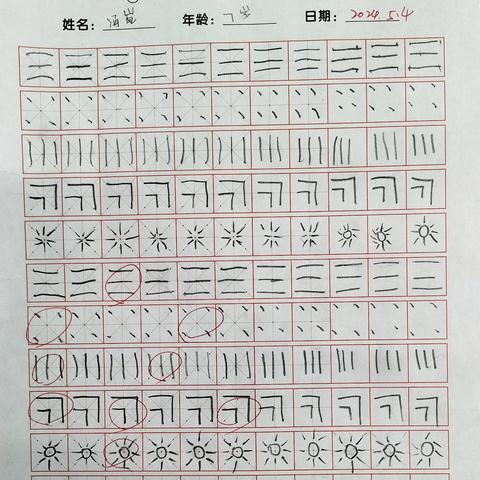 姓名: 年龄: 7岁 日期: 2024.5.4